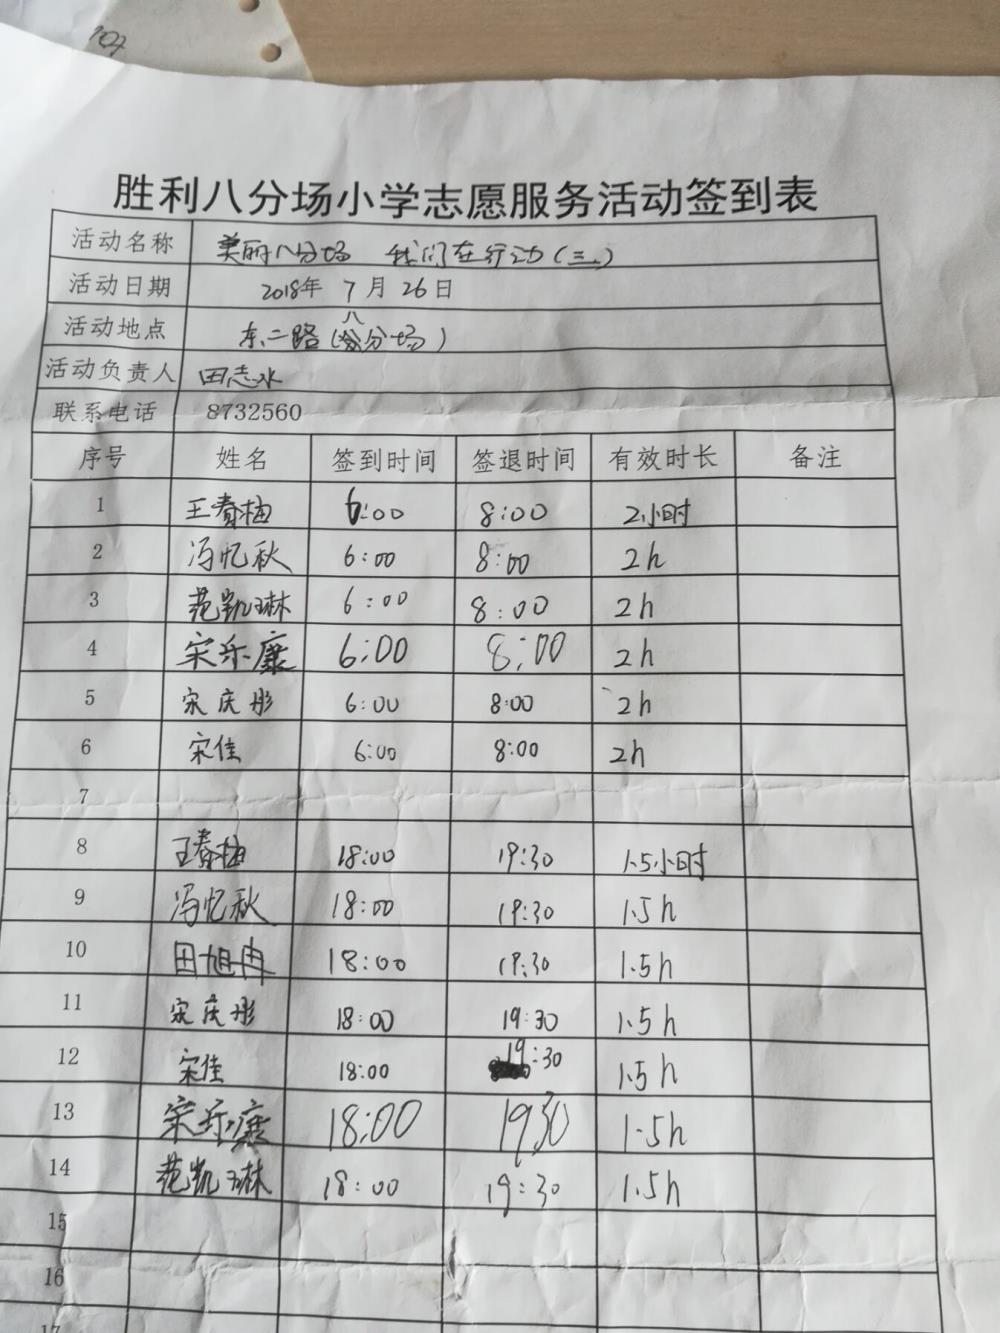 107
胜利八分场小学志愿服务活动签到表
活动名称 美丽八分场 我们在行动(三)
活动日期 2018年 7月26日
活动地点 东二路(八分场)
活动负责人 田志水
联系电话 8732560
序号 姓名 签到时间 签退时间 有效时长 备注
1 王春梅 6:00 8:00 2小时
2 冯忆秋 6:00 8:00 2h
3 范凯琳 6:00 8:00 2h
4 宋乐康 6:00 8:00 2h
5 宋庆彤 6:00 8:00 2h
6 宋佳 6:00 8:00 2h
7
8 王春梅 18:00 19:30 1.5小时
9 冯忆秋 18:00 19:30 1.5h
10 田旭冉 18:00 19:30 1.5h
11 宋庆彤 18:00 19:30 1.5h
12 宋佳 18:00 19:30 1.5h
13 宋乐康 18:00 1930 1.5h
14 范凯琳 18:00 19:30 1.5h
15
16
17